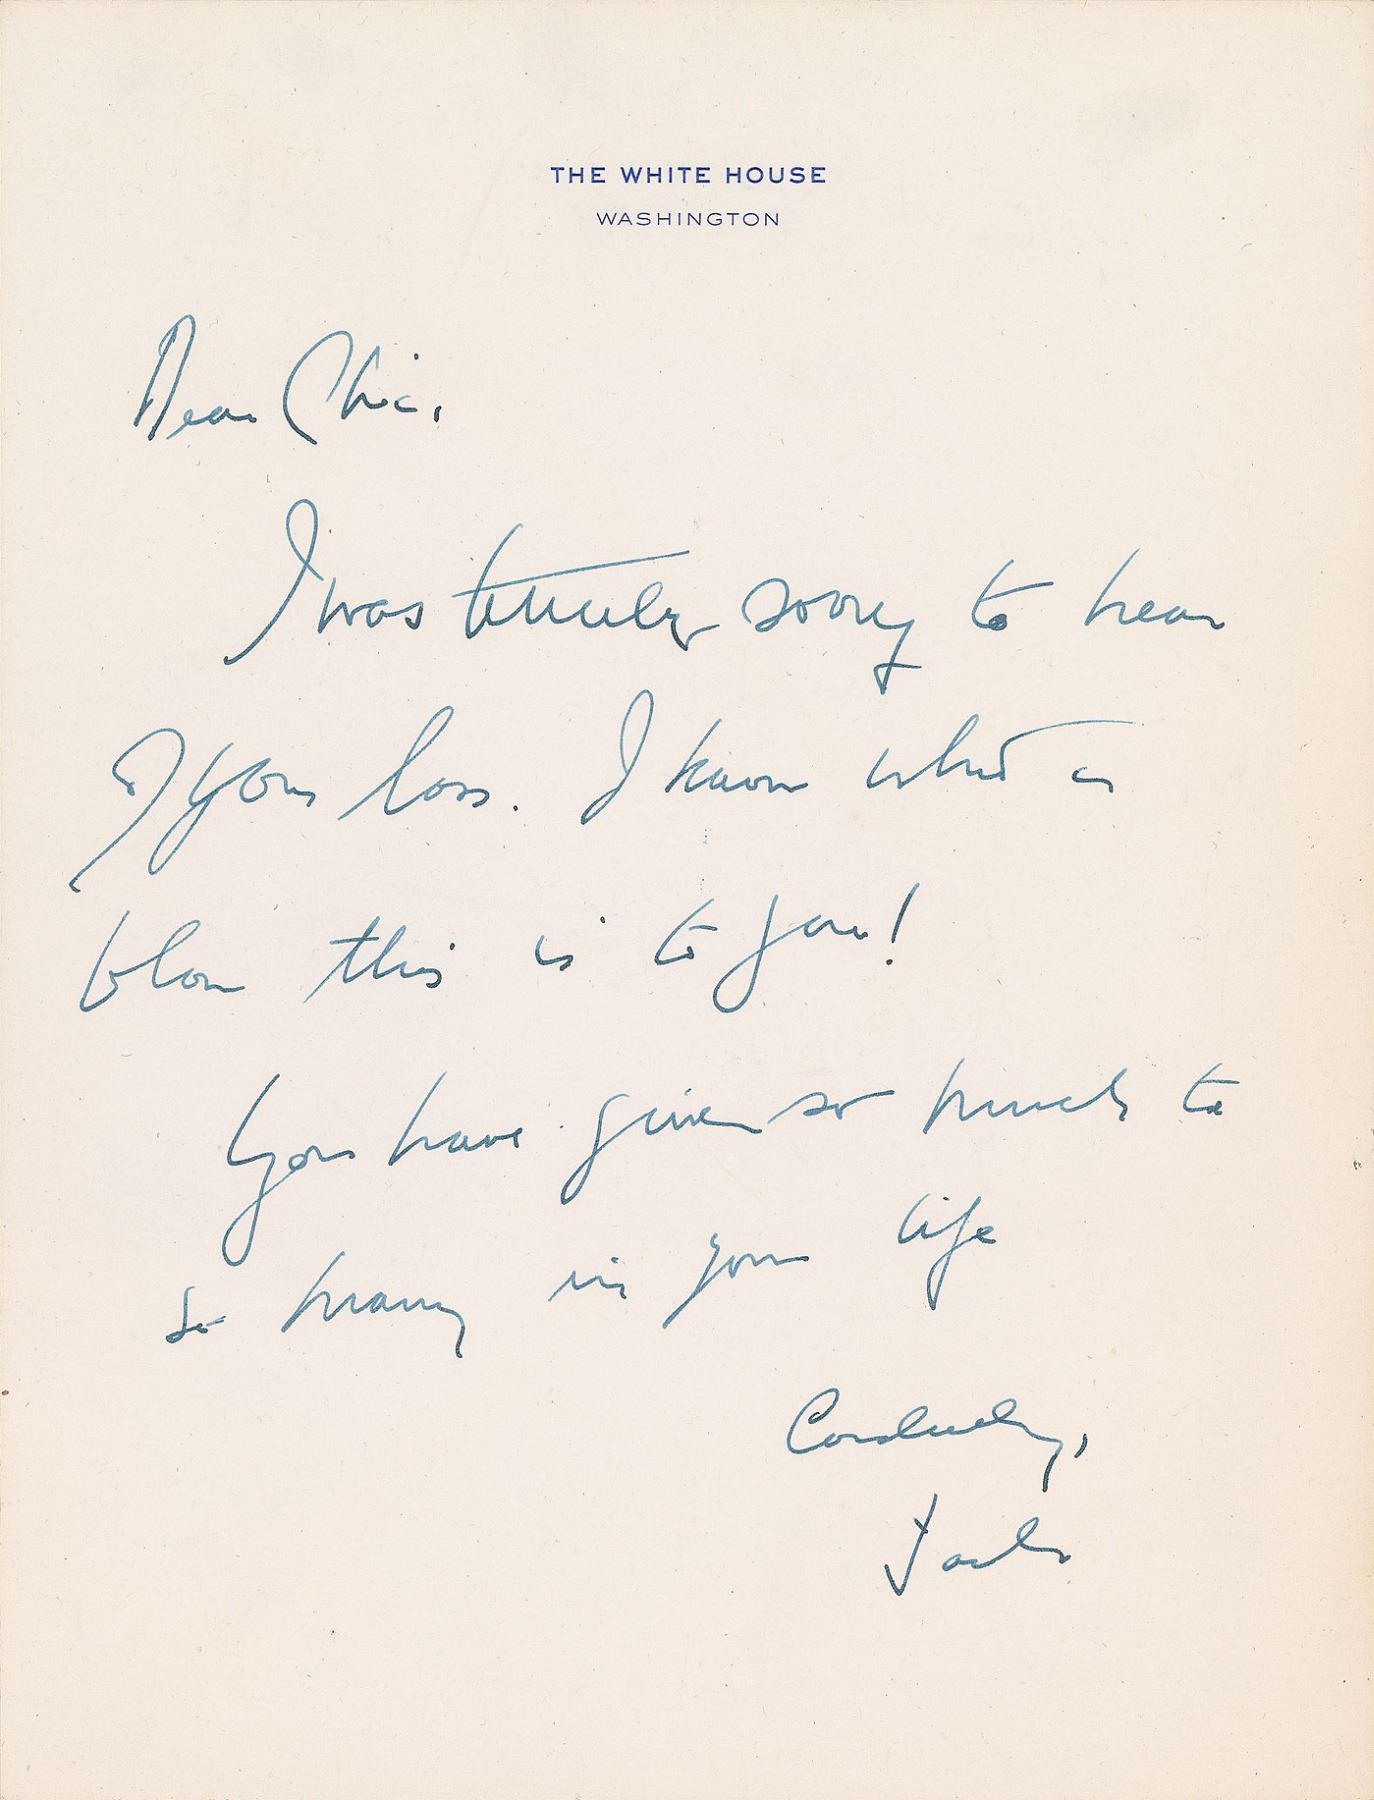 THE WHITE HOUSE
WASHINGTON
Dear Chic,
I was terribly sorry to hear
of your loss. I know what a
blow this is to you!
You have given so much to
so many in your life
Cordially,
Jack